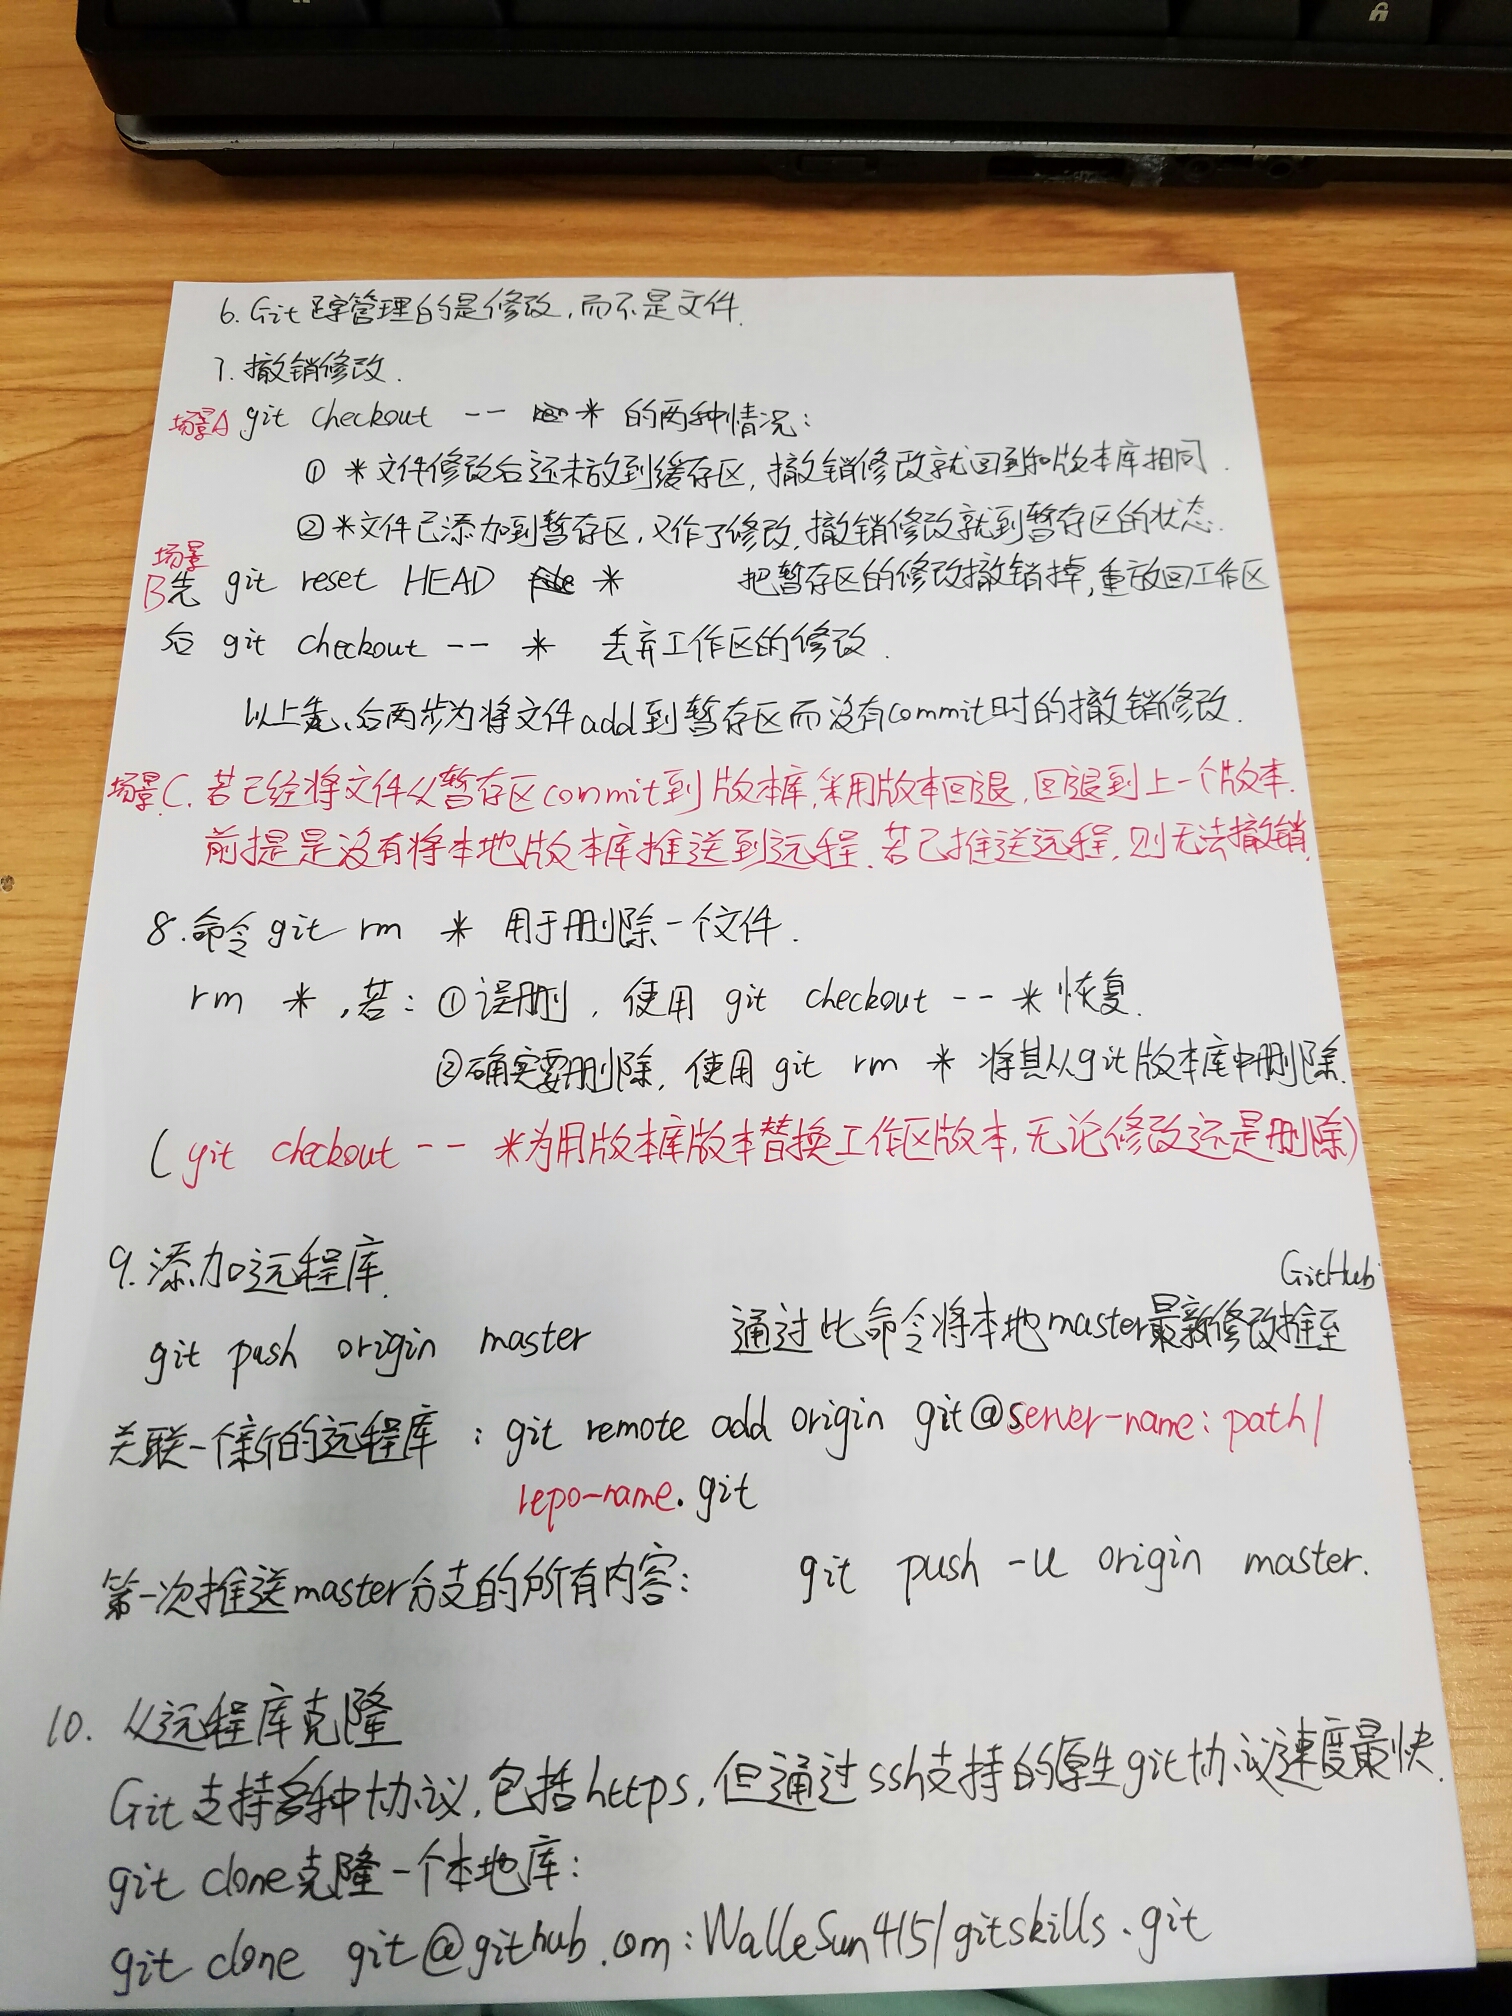 6. Git 管理的是修改,而不是文件.
7. 撤销修改.
场景A git checkout -- * 的两种情况:
① *文件修改后还未放到缓存区,撤销修改就回到和版本库相同.
②*文件已添加到暂存区,又作了修改,撤销修改就到暂存区的状态.
场景
B先 git reset HEAD * 把暂存区的修改撤销掉,重放回工作区
后 git checkout -- * 丢弃工作区的修改.
以上先、后两步为将文件add到暂存区而没有commit时的撤销修改.
场景C. 若已经将文件从暂存区commit到版本库,采用版本回退,回退到上一个版本.
前提是没有将本地版本库推送到远程.若已推送远程,则无法撤销.
8.命令git rm * 用于删除一个文件.
rm * ,若: ①误删,使用 git checkout -- * 恢复.
②确实要删除,使用git rm * 将其从git版本库中删除.
(git checkout -- *为用版本库版本替换工作区版本,无论修改还是删除)
9.添加远程库.
GitHub
git push origin master 通过此命令将本地master最新修改推至
关联一个新的远程库 : git remote add origin git@server-name:path/
repo-name.git
第一次推送master分支的所有内容: git push -u origin master.
10. 从远程库克隆
Git支持多种协议,包括https,但通过ssh支持的原生git协议速度最快.
git clone克隆一个本地库:
git clone git@github.com:WalleSun415/gitskills.git